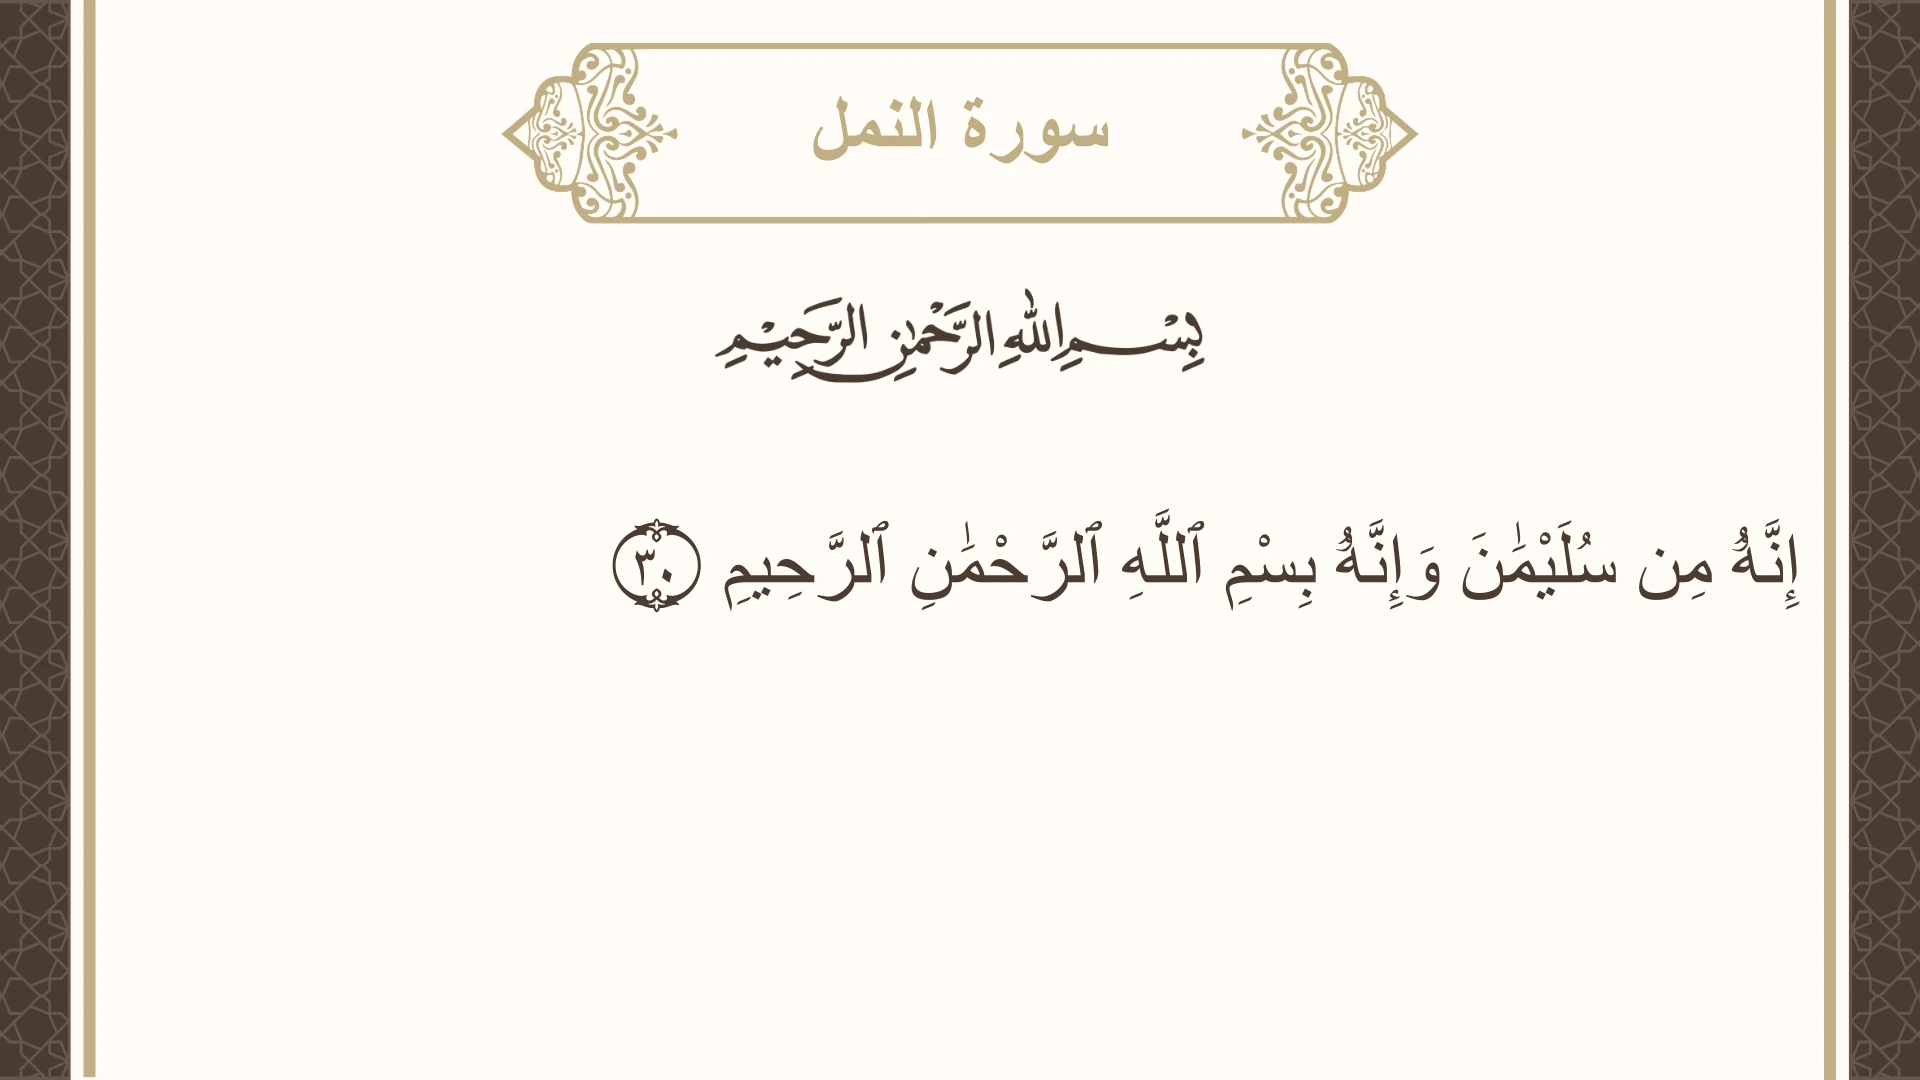 سورة النمل
بِسْمِ اللهِ الرَّحْمٰنِ الرَّحِيْمِ
إِنَّهُۥ مِن سُلَيْمَـٰنَ وَإِنَّهُۥ بِسْمِ ٱللَّهِ ٱلرَّحْمَـٰنِ ٱلرَّحِيمِ ٣٠